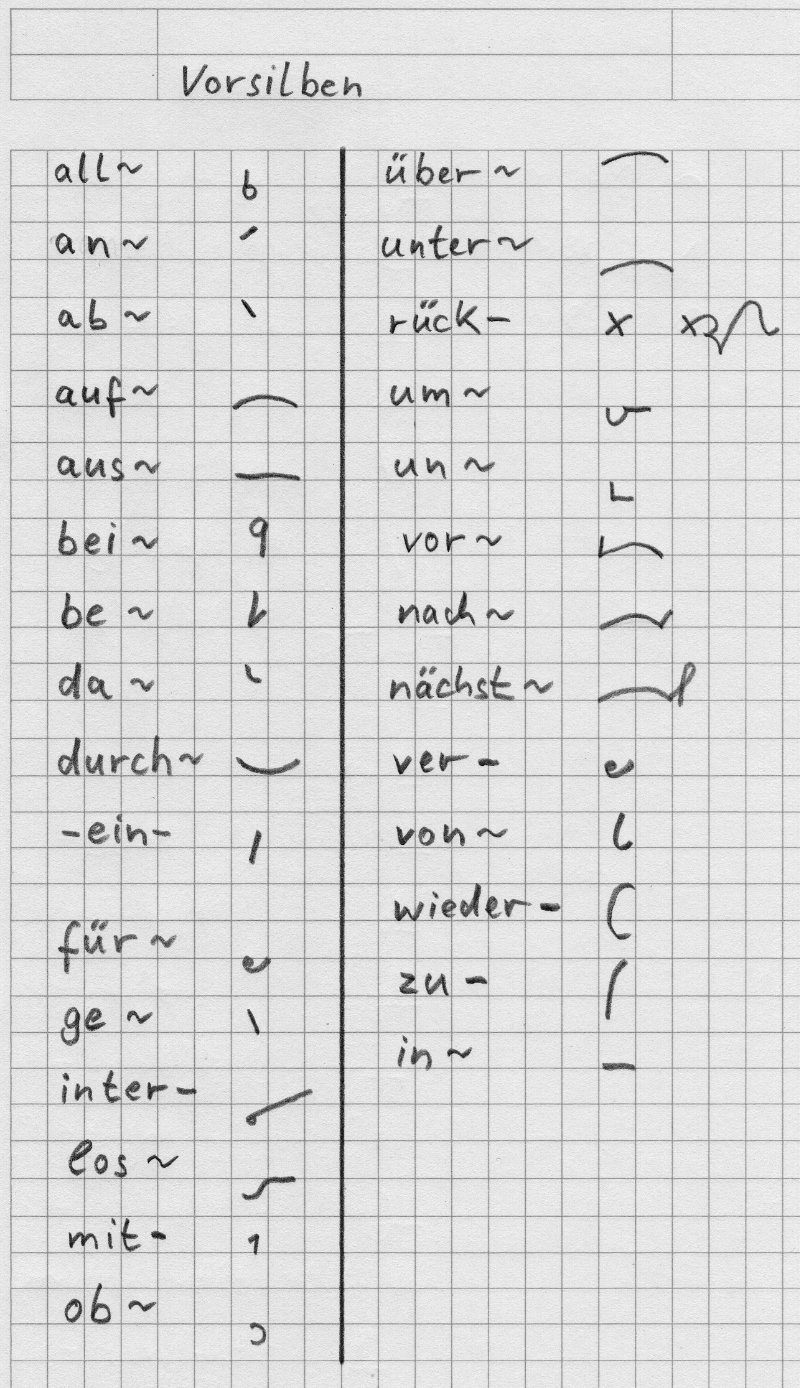 Vorsilben
all~
an~
ab~
auf~
aus~
bei~
be~
da~
durch~
-ein-
für~
ge~
inter-
los~
mit-
ob~
über~
unter~
rück-
um~
un~
vor~
nach~
nächst~
ver-
von~
wieder-
zu-
in~